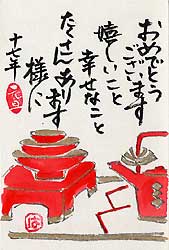 おめでとう
ございます
嬉しいこと
幸せなこと
たくさんあります
様に
十七年
元旦